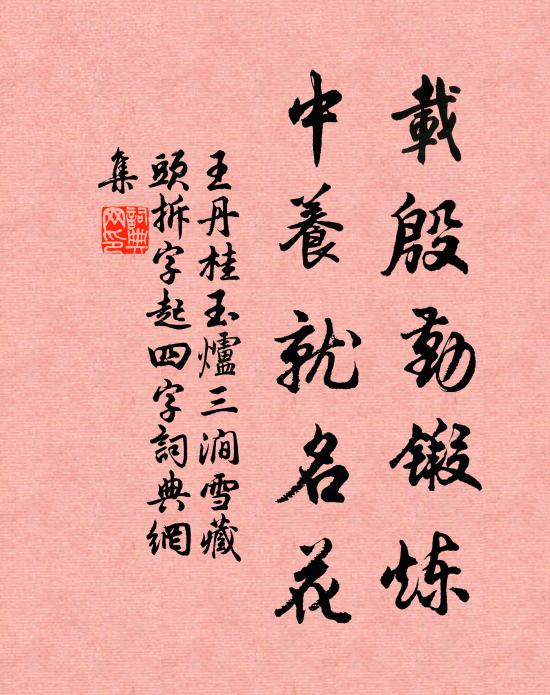 載殷勤鍛炼
中養就名花
王丹桂玉爐三澗雪藏
頭拆字起四字詞典網
集
詞典網印